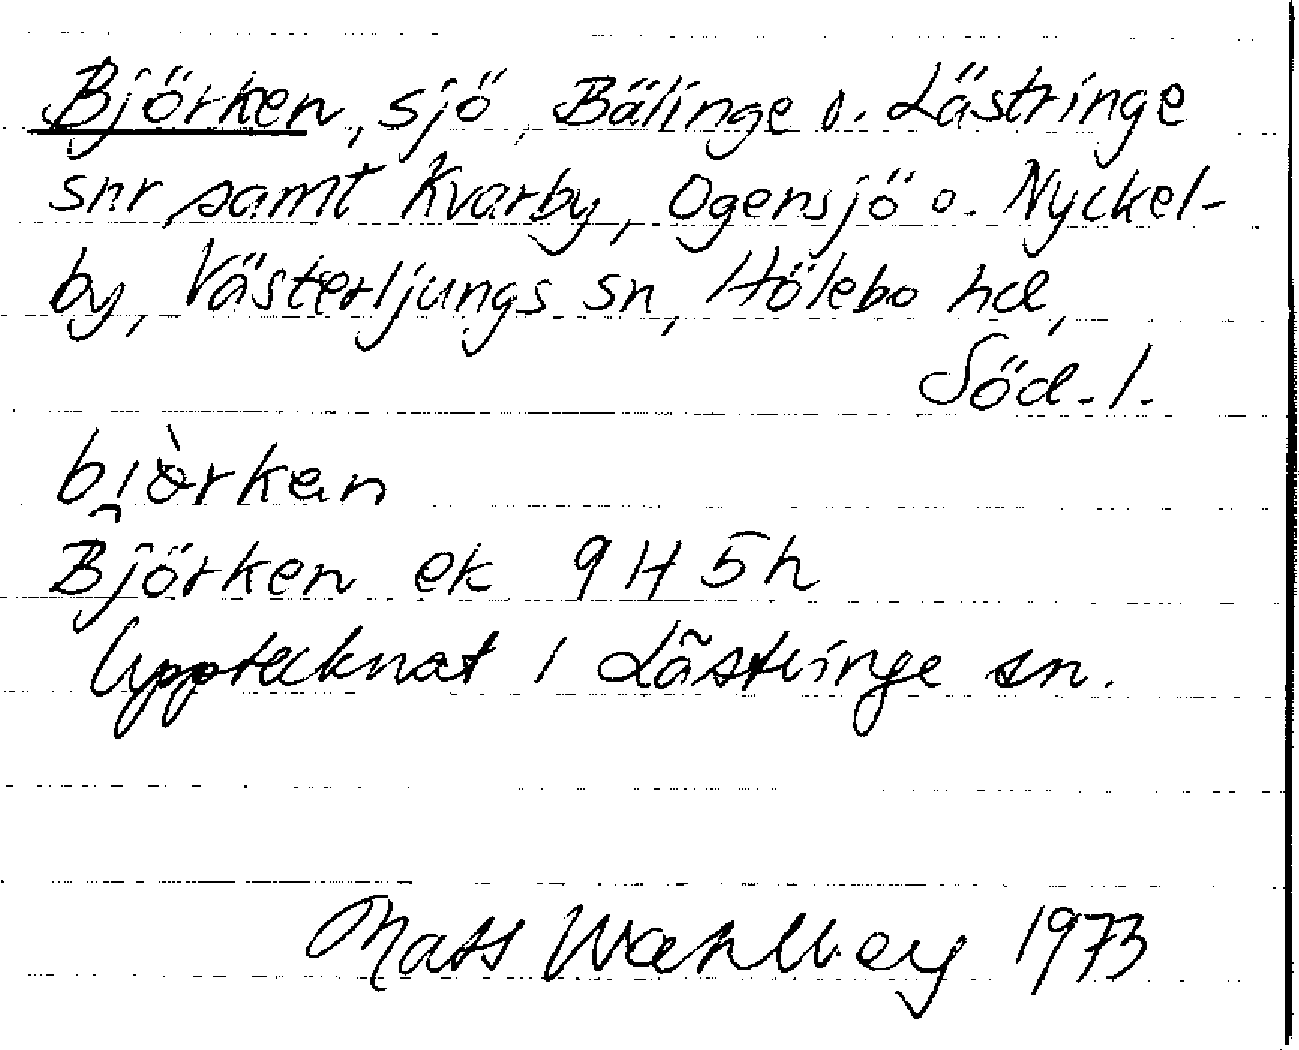 Björken, sjö, Bälinge o. Lästringe
snr samt Kvarby, Ogensjö o. Nyckel-
by, Västerljungs sn, Hölebo hd,
Söd. l.
bi̯ö̀rkan
Björken ek 9H5h
Upptecknat i Lästringe sn.
Mats Wahlberg 1973